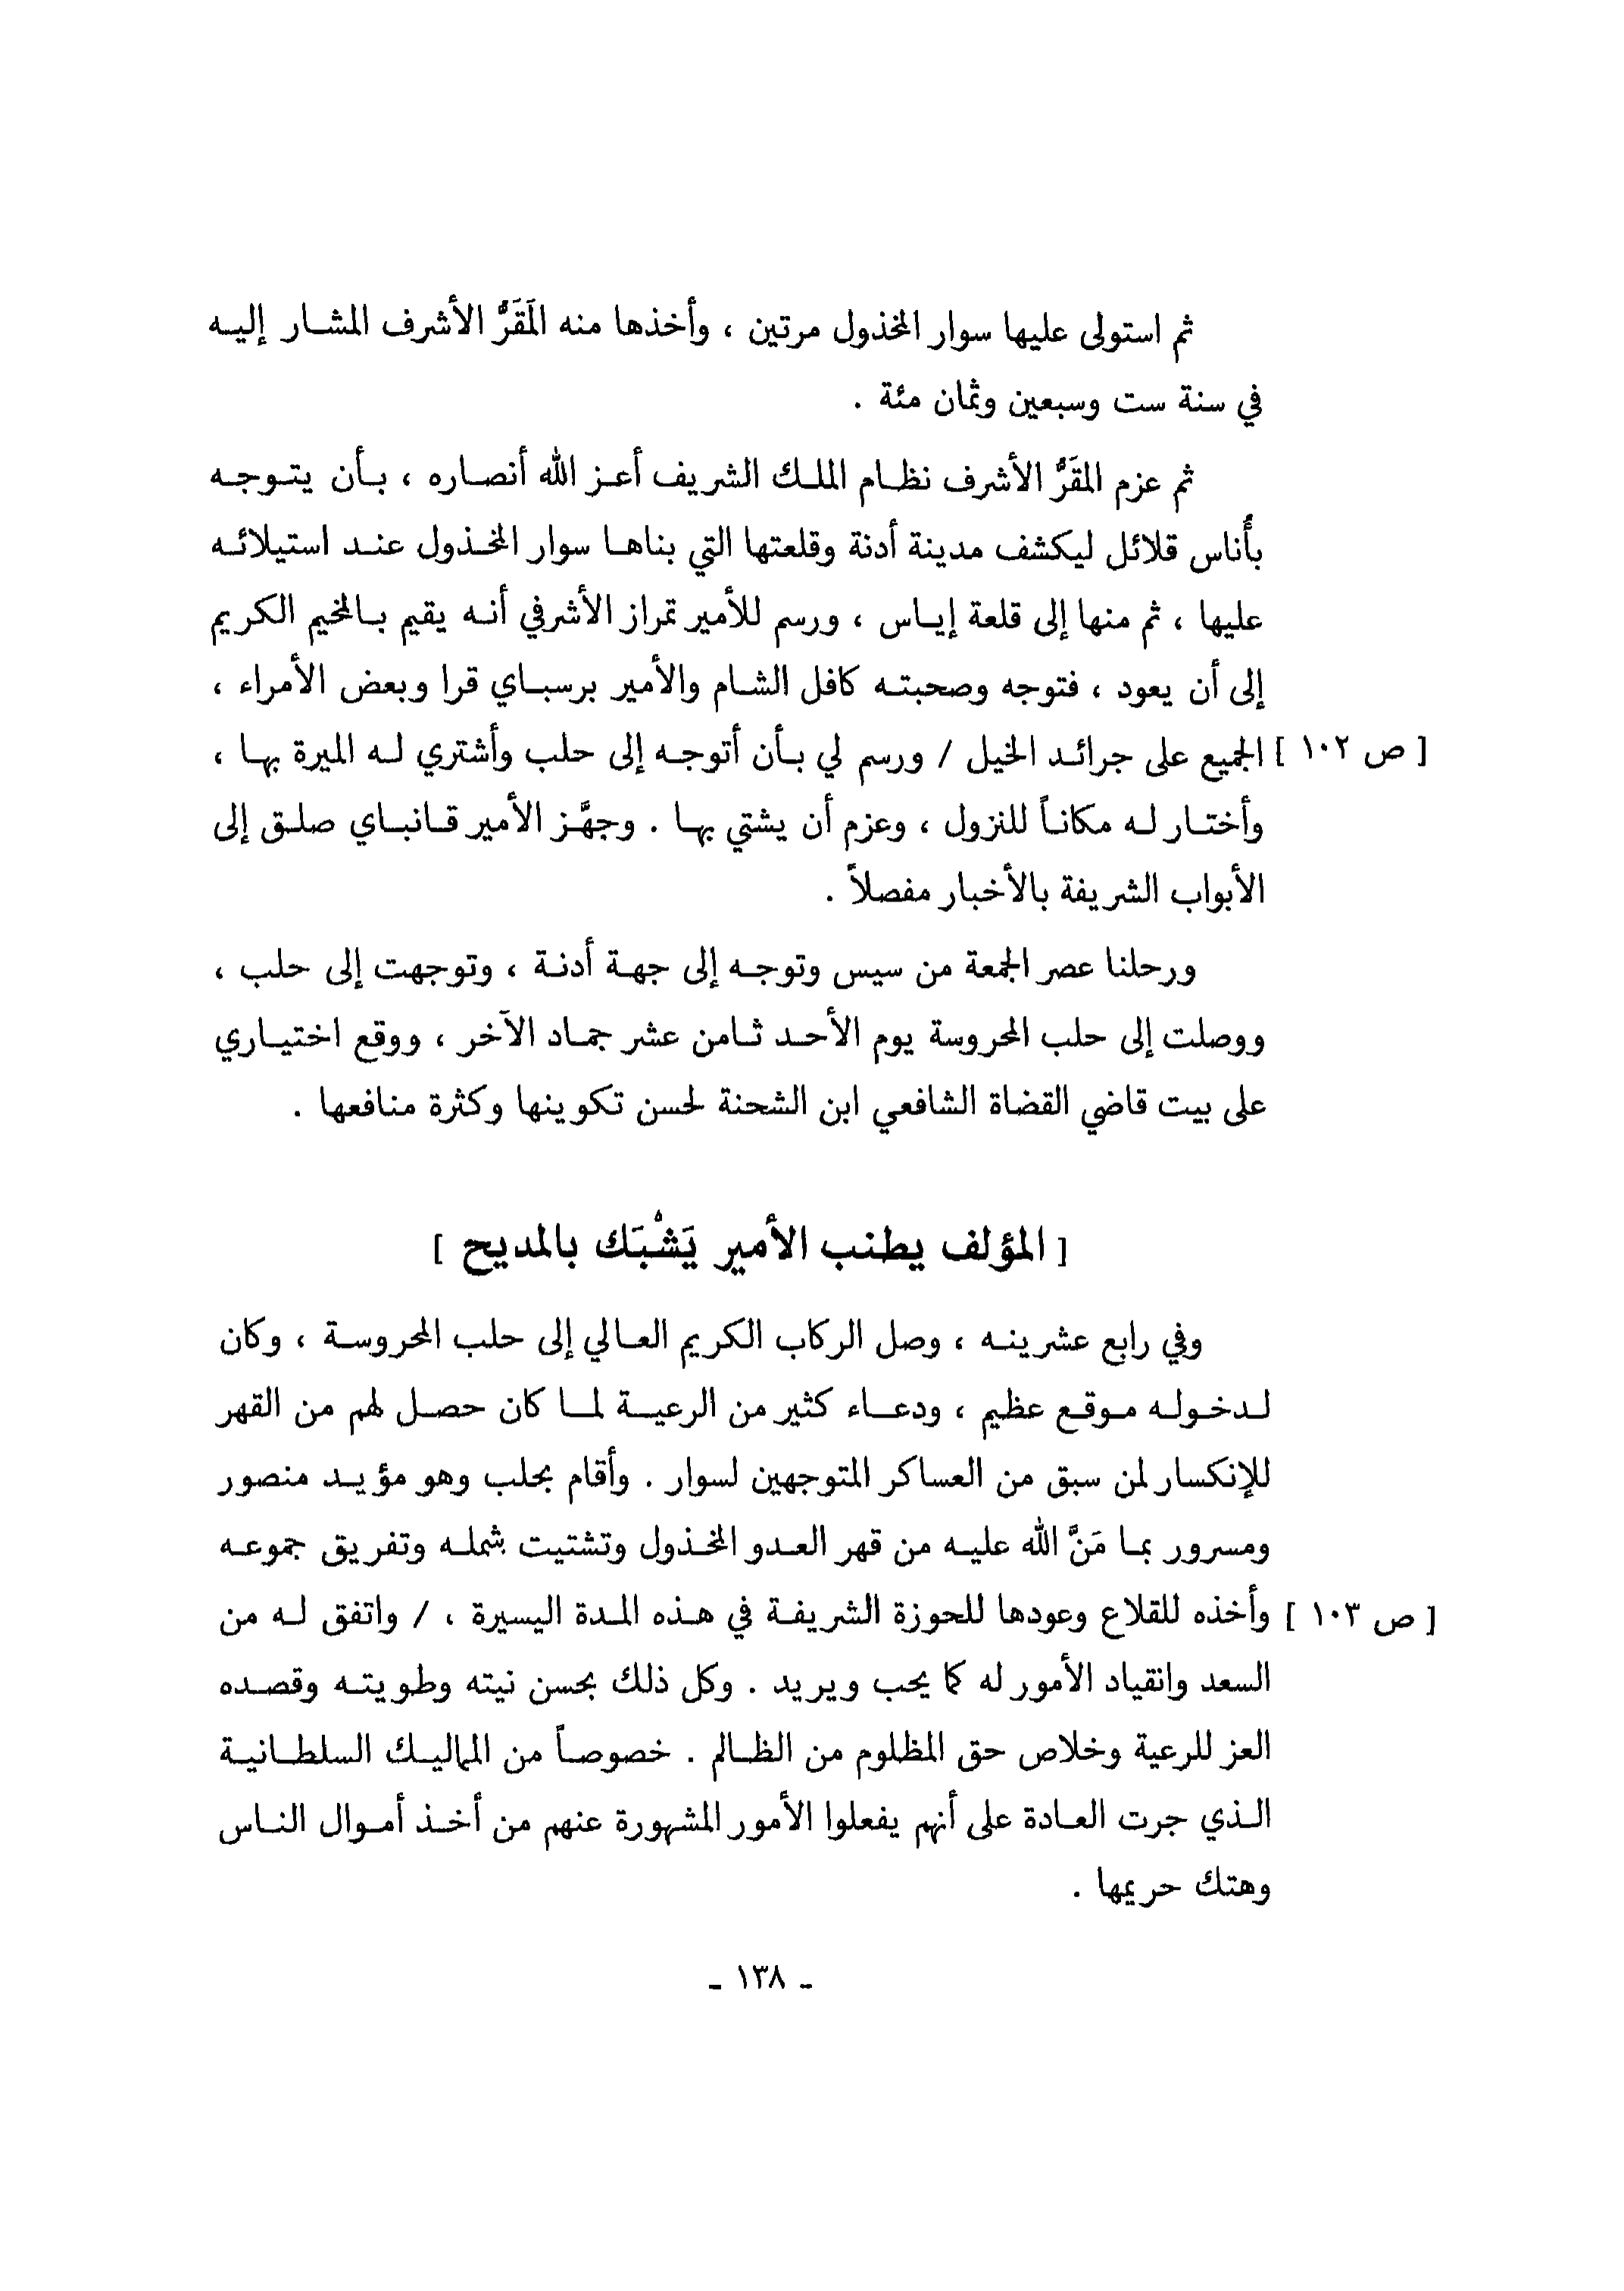 ثم استولى عليها سوار المخذول مرتين ، وأخذها منه المَقَرُّ الأشرف المشار إليه
في سنة ست وسبعين وثمان مئة .
ثم عزم المقَرُّ الأشرف نظام الملك الشريف أعز الله أنصاره ، بأن يتوجه
بأُناس قلائل ليكشف مدينة أدنة وقلعتها التي بناها سوار المخذول عند استيلائه
عليها ، ثم منها إلى قلعة إياس ، ورسم للأمير تمراز الأشرفي أنه يقيم بالمخيم الكريم
إلى أن يعود ، فتوجه وصحبته كافل الشام والأمير برسباي قرا وبعض الأمراء ،
[ ص ١٠٢ ] الجميع على جرائد الخيل / ورسم لي بأن أتوجه إلى حلب وأشتري له الميرة بها ،
وأختار له مكاناً للنزول ، وعزم أن يشتي بها . وجهَّز الأمير قانباي صلق إلى
الأبواب الشريفة بالأخبار مفصلاً .
ورحلنا عصر الجمعة من سيس وتوجه إلى جهة أدنة ، وتوجهت إلى حلب ،
ووصلت إلى حلب المحروسة يوم الأحد ثامن عشر جماد الآخر ، ووقع اختياري
على بيت قاضي القضاة الشافعي ابن الشحنة لحسن تكوينها وكثرة منافعها .
[ المؤلف يطنب الأمير يَشْبَك بالمديح ]
وفي رابع عشرينه ، وصل الركاب الكريم العالي إلى حلب المحروسة ، وكان
لدخوله موقع عظيم ، ودعاء كثير من الرعية لما كان حصل لهم من القهر
للإنكسار لمن سبق من العساكر المتوجهين لسوار . وأقام بحلب وهو مؤيد منصور
ومسرور بما مَنَّ الله عليه من قهر العدو المخذول وتشتيت شمله وتفريق جموعه
[ ص ١٠٣ ] وأخذه للقلاع وعودها للحوزة الشريفة في هذه المدة اليسيرة ، / واتفق له من
السعد وانقياد الأمور له كما يحب ويريد . وكل ذلك بحسن نيته وطويته وقصده
العز للرعية وخلاص حق المظلوم من الظالم . خصوصاً من المماليك السلطانية
الذي جرت العادة على أنهم يفعلوا الأمور المشهورة عنهم من أخذ أموال الناس
وهتك حريمها .
- ١٣٨ -